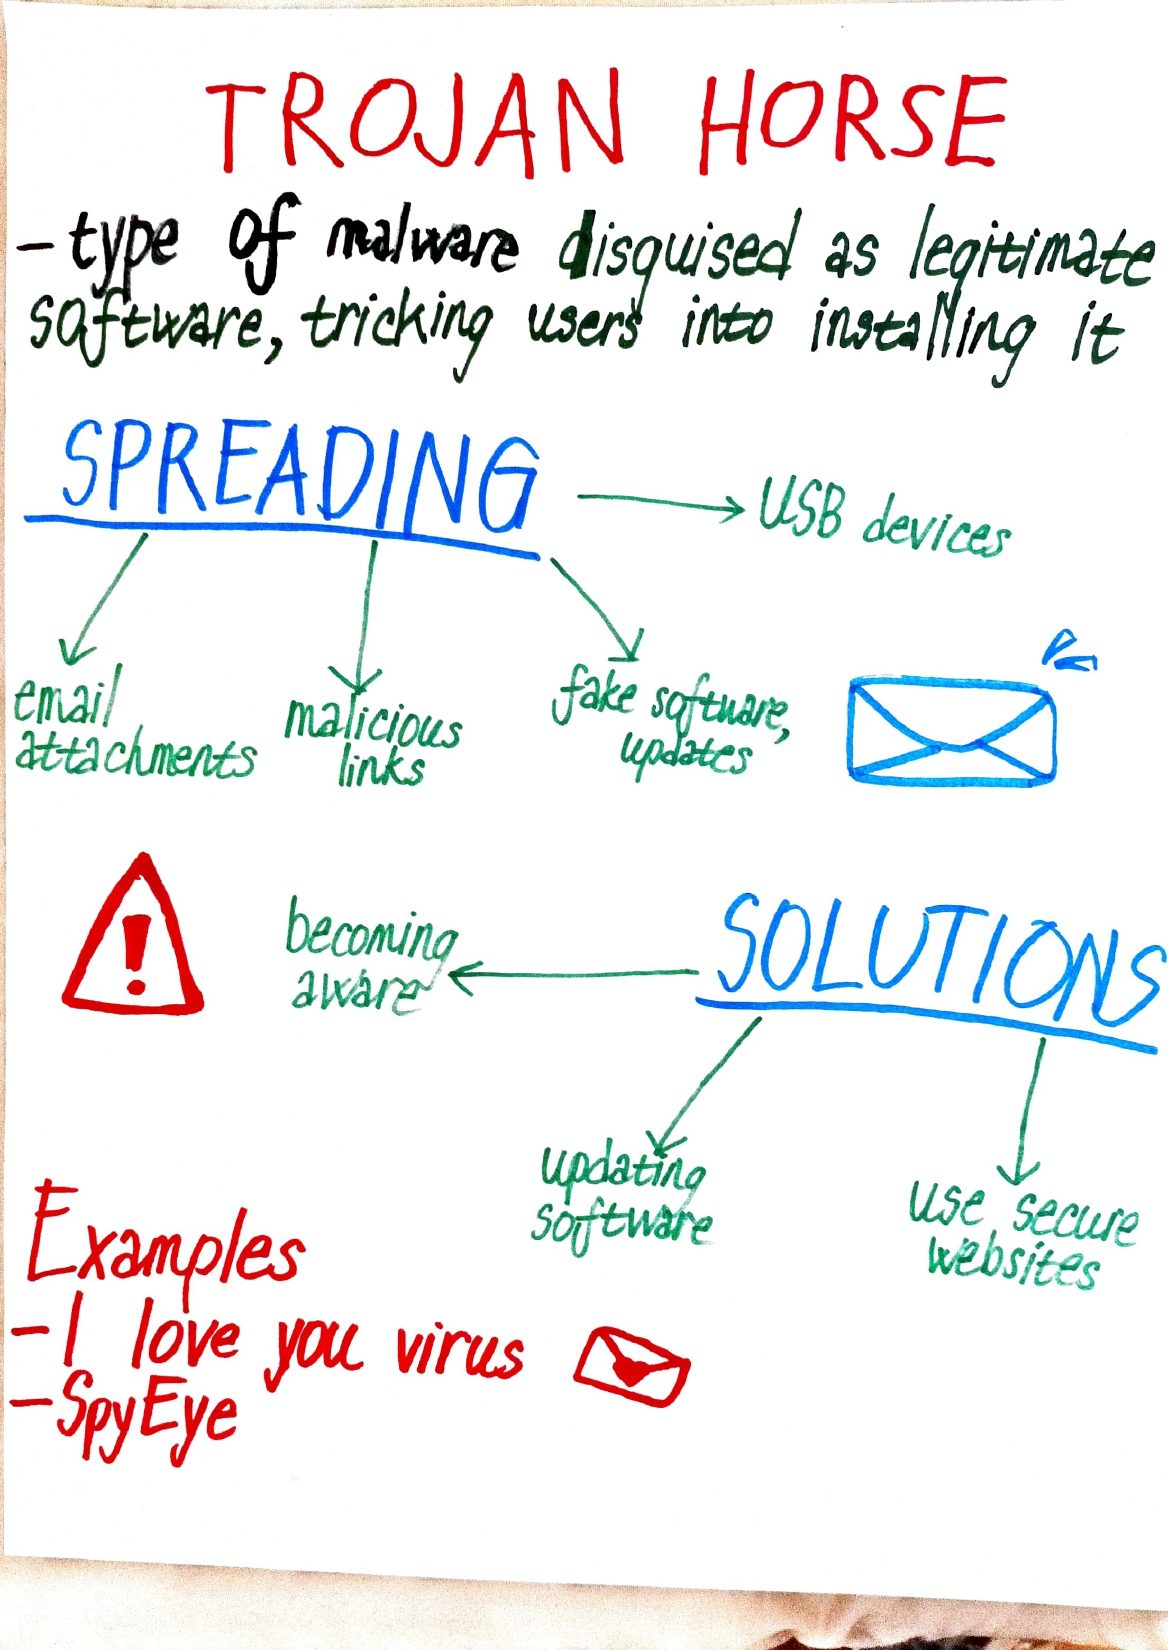 TROJAN HORSE
- type of malware disguised as legitimate
software, tricking users into installing it
SPREADING
USB devices
email
attachments
malicious
links
fake software,
updates
!
SOLUTIONS
becoming
aware
updating
software
use secure
websites
Examples
- I love you virus
- SpyEye